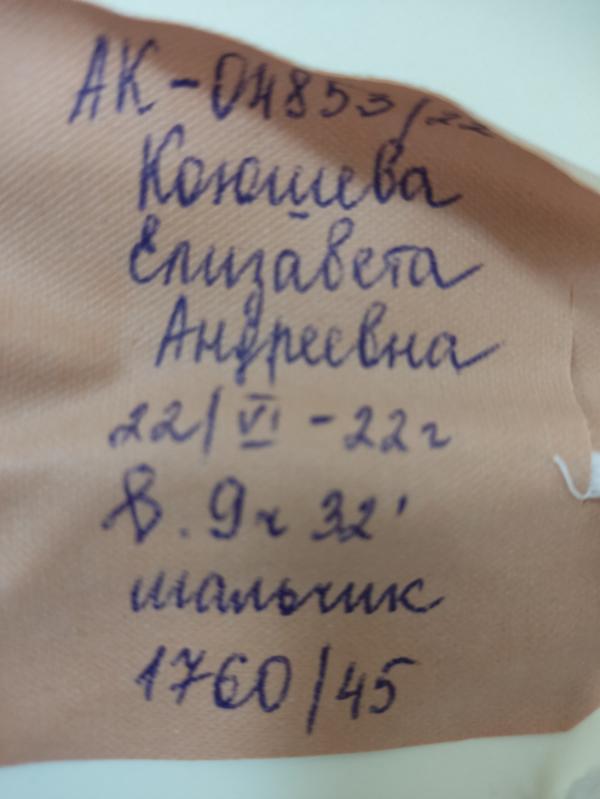 АК-04853/22
Коюшева
Елизавета
Андреевна
22/VI-22г
В. 9ч 32'
мальчик
1760/45